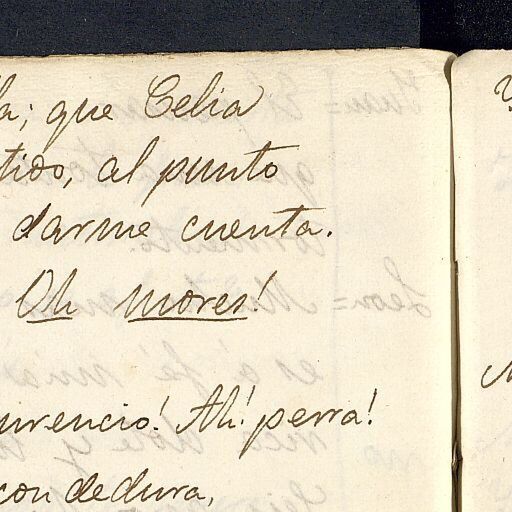 la; que Celia
tido, al punto
darme cuenta.
Oh mores!
urencio! Ah! perra!
con dedura,